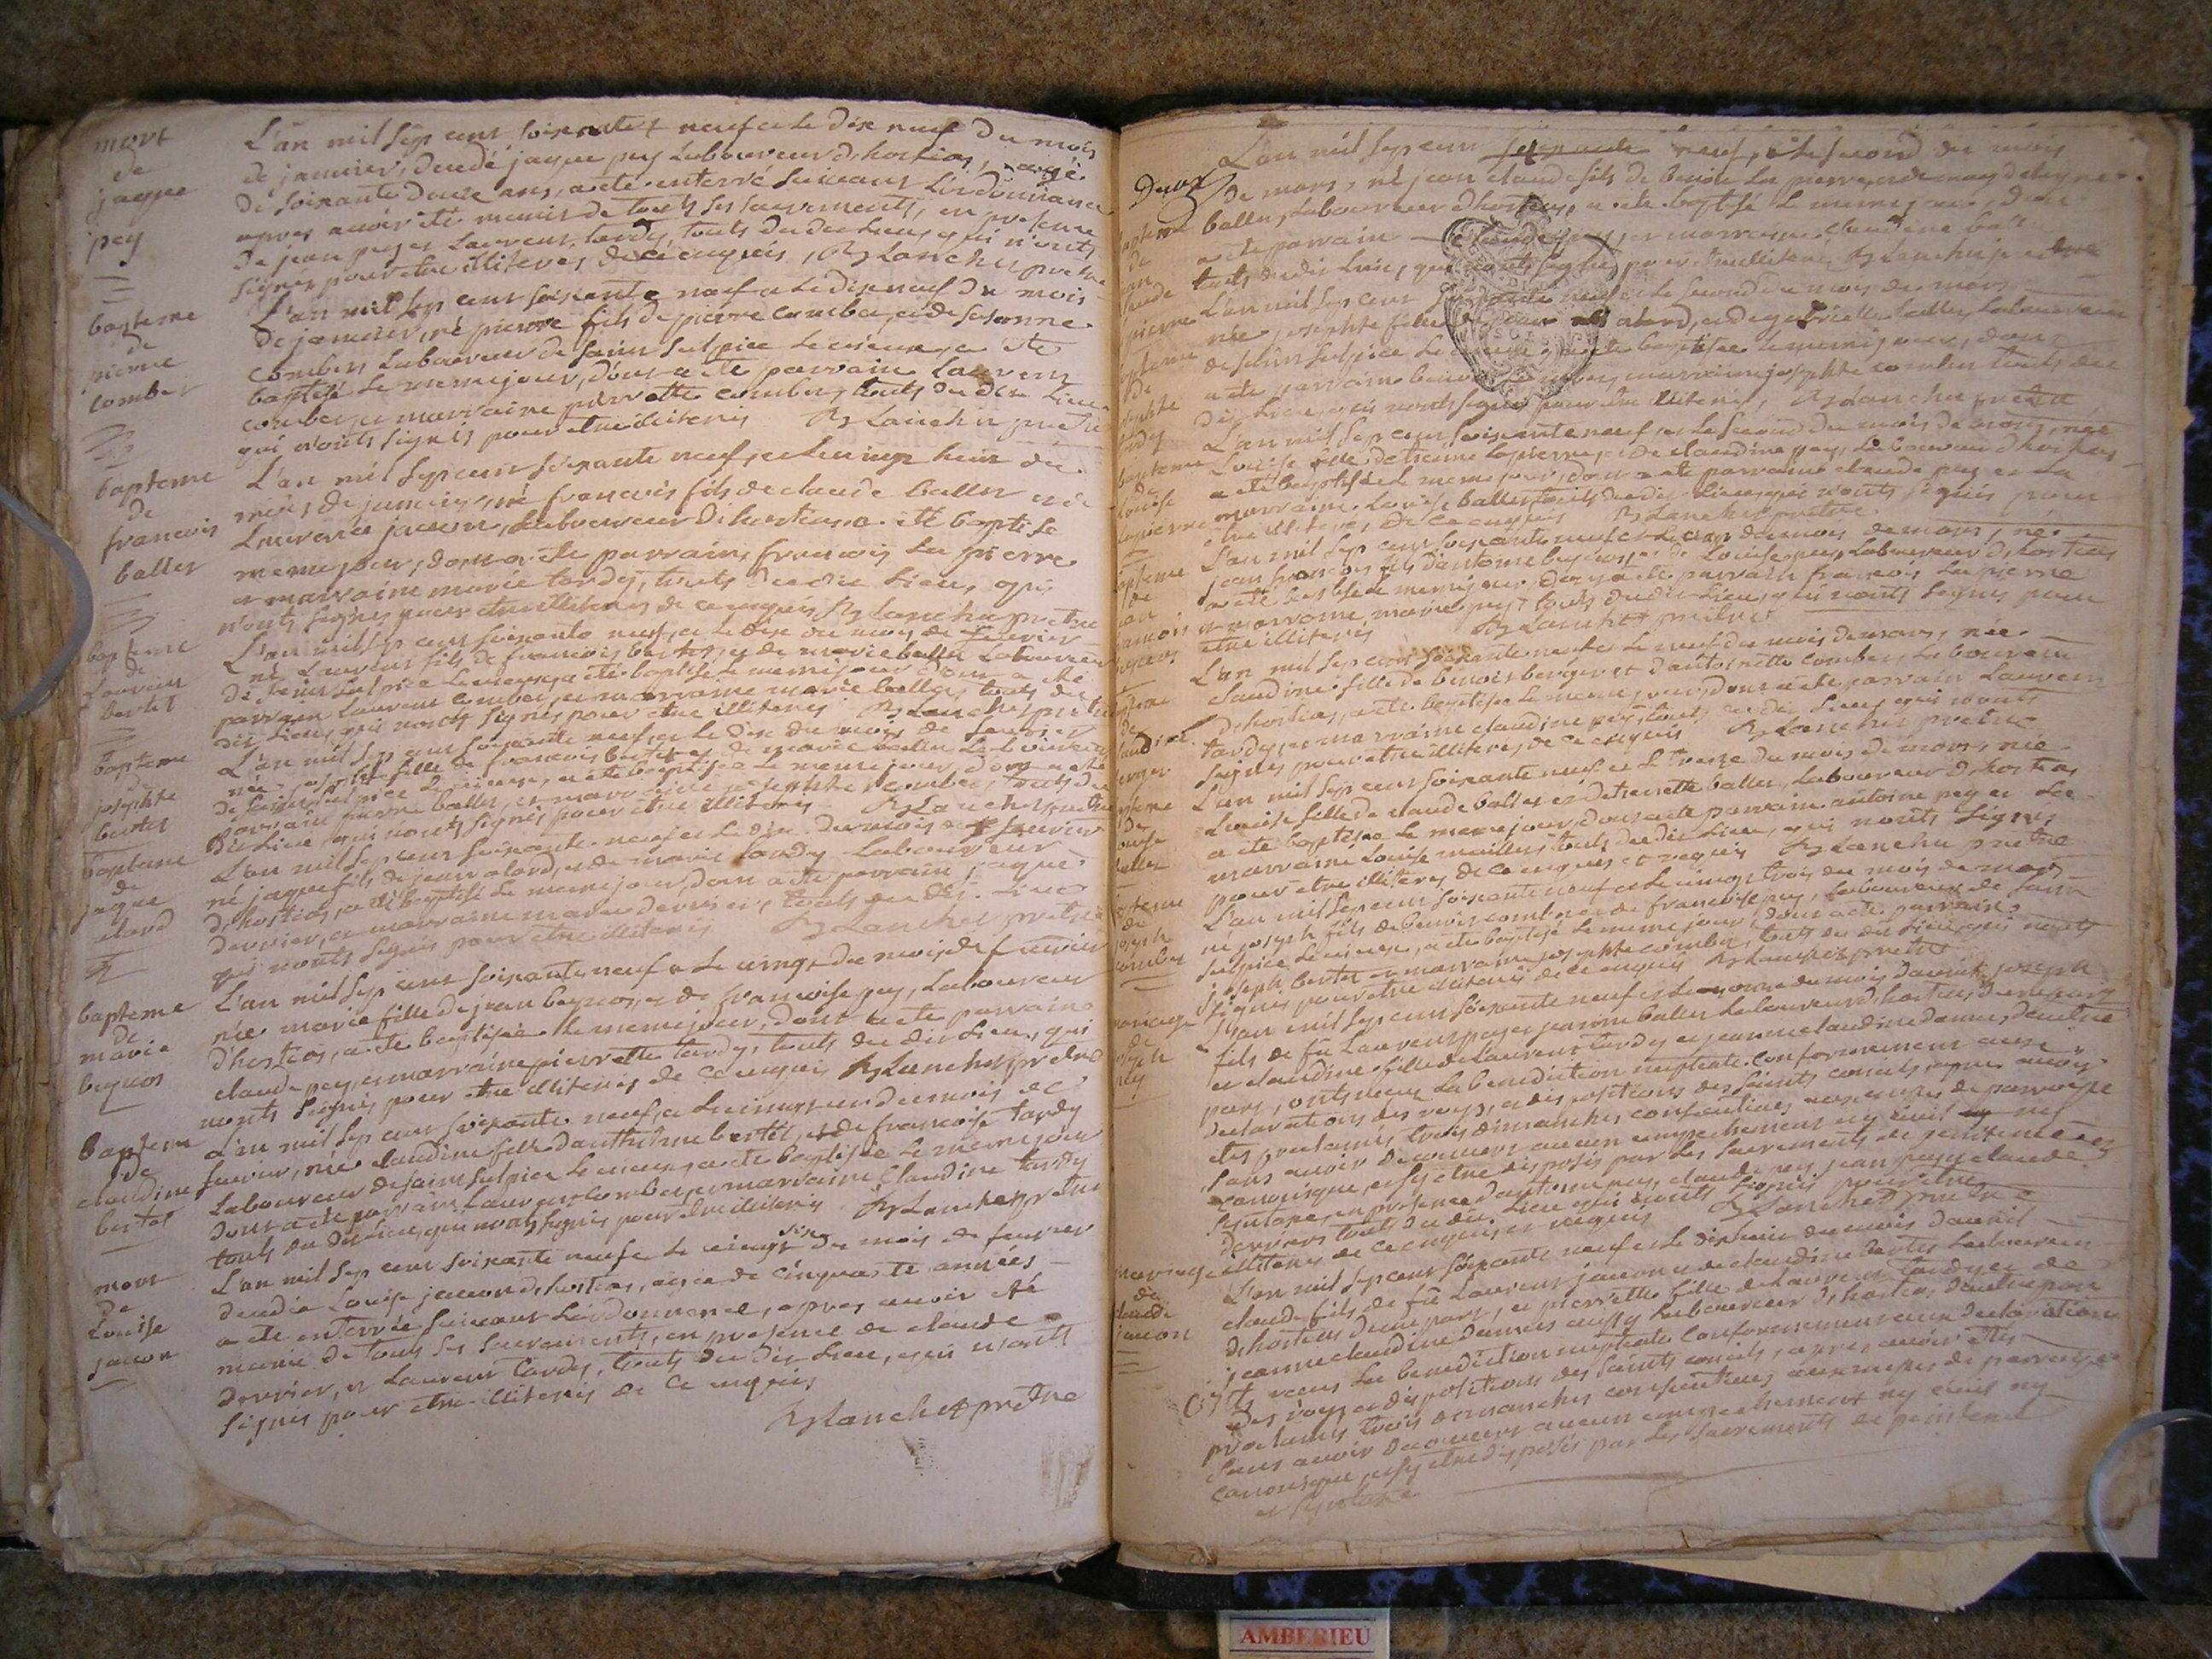 mort
de
jaque
pey
L'an mil sep cent soixante neuf et le dix neuf du mois
de janvier, decedé jaque pey laboureur d'hostias, agé
de soixante douze ans, a eté enterré suivant l'ordonnance
apres avoir eté munis de touts ses sacrements, en presence
de jean pey et laurent tardy, touts du dit lieu, qui n'onts
signés pour etre illiteres de ce enquis, Lanchet pretre
bapteme
de
pierre
combet
L'an mil sep cent soixante neuf et le dix neuf du mois
de janvier, né pierre fils de pierre combet, et de susanne
combet laboureur de saint sulpice le vieux, a eté
baptisé le meme jour, dont a eté parrain laurent
combet, et marraine pierrette combet, touts du dit lieu
qui n'onts signés pour etre illiterés Lanchet pretre
bapteme
de
francois
ballet
L'an mil sep cent soixante neuf, et le vingt huit du
mois de janvier, né francois fils de claude ballet et de
Laurence jacon, laboureur d'hostias, a eté baptisé le
meme jour, dont a eté parrain francois la pierre
et marraine marie tardy, touts du dit lieu, qui
n'onts signés pour etre illiteres de ce enquis Lanchet pretre
bapteme
de
Laurent
bertet
L'an mil sep cent soixante neuf, et le dix du mois de fevrier
né Laurent fils de francois bertet, et de marie ballet laboureur
de saint sulpice le vieux, a eté baptisé le meme jour dont a eté
parrain laurent combet, et marraine marie ballet, touts du
dit lieu, qui n'onts signés pour etre illiteres Lanchet pretre
bapteme
de
josephte
bertet
L'an mil sep cent soixante neuf, et le dix du mois de fevrier
née josephte fille de francois bertet, et de marie ballet laboureur
de saint sulpice le vieux, a eté baptisée le meme jour, dont a eté
parrain pierre ballet, et marraine josephte combet, touts du
dit lieu, qui n'onts signés pour etre illiteres Lanchet pretre
bapteme
de
jaque
alard
L'an mil sep cent soixante neuf et le dix du mois de fevrier
né jaque fils de jean alard, et de marie tardy laboureur
d'hostias, a eté baptisé le meme jour, dont a eté parrain jaque
derrier, et marraine marie derrier, touts du dit lieu
qui n'onts signés pour etre illiterés Lanchet pretre
bapteme
de
marie
L'an mil sep cent soixante neuf et le vingt du mois de fevrier
née marie fille de jean et de francoise pey, laboureur
d'hostias, a eté baptisée le meme jour, dont a eté parrain
claude pey, et marraine pierrette tardy, touts du dit lieu, qui
n'onts signés pour etre illiteres de ce enquis Lanchet pretre
bapteme
de
claudine
bertet
L'an mil sep cent soixante neuf, et le vingt un du mois de
fevrier, née claudine fille d'anthelme bertet, et de francoise tardy
laboureur de saint sulpice le vieux, a eté baptisée le meme jour
dont a eté parrain laurent combet, et marraine claudine tardy
touts du dit lieu, qui n'onts signés pour etre illiterés Lanchet pretre
mort
de
Louise
jacon
L'an mil sep cent soixante neuf et le vingt six du mois de fevrier
decedée Louise jacon d'hostias, agée de cinquante années
a eté enterrée suivant l'ordonnance, apres avoir eté
munie de touts ses sacrements, en presence de claude
derrier, et laurent tardy, touts du dit lieu, qui n'onts
signés pour etre illiterés de ce enquis
Lanchet pretre
Deux
L'an mil sep cent soixante neuf, et le second du mois
de mars, né jean claude fils de benoit la pierre, et de
ballet, laboureur d'hostias, a eté baptisé le meme jour, dont
a eté parrain claude pey, et marraine claudine ballet
touts du dit lieu, qui n'onts signés pour etre illiteres, Lanchet pretre
L'an mil sep cent soixante neuf et le second du mois de mars
née josephte fille de alard, et de gabrielle ballet, laboureur
de saint sulpice le vieux, a eté baptisée le meme jour, dont
a eté parrain benoit marraine josephte combet touts du
dit lieu, qui n'onts signés pour etre illiterés, Lanchet pretre
bapteme
de
Louise
lapierre
L'an mil sep cent soixante neuf, et le second du mois de mars, née
Louise fille d'etienne lapierre, et de claudine pey, laboureur d'hostias
a eté baptisée le meme jour, dont a eté parrain claude pey et la
marraine Louise ballet touts du dit lieu, qui n'onts signés pour
etre illiteres de ce enquis Lanchet pretre
L'an mil sep cent soixante neuf et le cinq du mois de mars, né
jean francois fils d'antoine et de Louise pey laboureur d'hostias
a eté baptisé le meme jour, dont a eté parrain francois lapierre
et marraine marie pey, touts du dit lieu, qui n'onts signés pour
etre illiterés Lanchet pretre
L'an mil sep cent soixante neuf et le neuf du mois de mars, née
claudine fille de benoit berger et d'antoinette combet, laboureur
d'hostias, a eté baptisée le meme jour, dont a eté parrain laurent
tardy, et marraine claudine pey, touts du dit lieu qui n'onts
signés pour etre illiteres, de ce enquis Lanchet pretre
L'an mil sep cent soixante neuf et le treize du mois de mars, née
Louise fille de claude ballet et d'etiennette ballet, laboureur d'hostias
a eté baptisée le meme jour, dont a eté parrain antoine pey et la
marraine Louise maillet touts du dit lieu, qui n'onts signés
pour etre illiteres de ce enquis et requis Lanchet pretre
L'an mil sep cent soixante neuf et le vingt trois du mois de mars
né joseph fils de benoit combet et de francoise pey, laboureur de saint
sulpice le vieux, a eté baptisé le meme jour, dont a eté parrain
joseph bertet et marraine josephte combet, touts du dit lieu, qui n'onts
signés pour etre illiterés de ce enquis Lanchet pretre
L'an mil sep cent soixante neuf et le onze du mois d'avril, joseph
fils de fû Laurent pey et jeanne ballet laboureur d'hostias, d'une part
et claudine fille de Laurent tardy et jeanne claudine damas, d'autre
part, onts reçus la benediction nuptiale conformement aux
declarations des roys, et dispositions des saints conciles, apres avoir
etes proclamés trois dimanches consecutives aux messes de parroisse
sans avoir decouvert aucun empechement ny civil ny
canonique, et s'y etre disposés par les sacrements de penitence et
syntaxe, en presence d'antoine pey, claude pey, jean pey, claude
derrier touts du dit lieu qui n'onts signés pour etre
illiteres de ce enquis et requis Lanchet pretre
mariage
de
claude
jacon
L'an mil sep cent soixante neuf et le dix huit du mois d'avril
claude fils de fû Laurent jacon et de claudine bertet laboureur
d'hostias d'une part, et pierrette fille de Laurent tardy et de
jeanne claudine damas aussy laboureur d'hostias, d'autre part
onts reçus la benediction nuptiale conformement aux declarations
des roys, et dispositions des saints conciles, apres avoir etes
proclamés trois dimanches consecutives aux messes de parroisse
sans avoir decouvert aucun empechement ny civil ny
canonique, et s'y etre disposés par les sacrements de penitence
et syntaxe
AMBERIEU